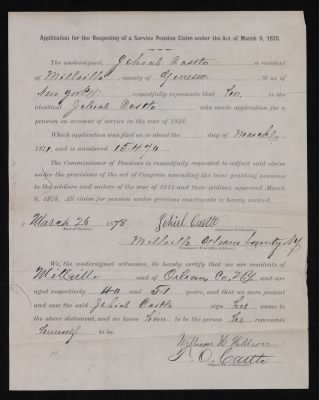 Application for the Reopening of a Service Pension Claim under the Act of March 9, 1878
The undersigned, Jehial Castle, a resident
of Millville, county of Genesee, State of
New York, respectfully represents that he is the
identical Jehial Castle who made application for a
pension on account of service in the war of 1812.
Which application was filed on or about the day of March
187 , and is numbered 15,440
The Commissioner of Pensions is respectfully requested to adjust said claim
under the provisions of the act of Congress amending the laws granting pensions
to the soldiers and sailors of the war of 1812 and their widows, approved March
9, 1878. All claim for pension under previous enactments is hereby waived.
March 26 1878 Jehiel Castle
Millville Orleans County N.Y.
We, the undersigned witnesses, do hereby certify that we are residents of
Millville and of Orleans Co, N.Y. and
aged respectively 40 and 51 years, and that we were present
and saw the said Jehial Castle sign his name to
the above statement, and we know him to be the person he represents
himself to be.
William H.
T. O. Castle